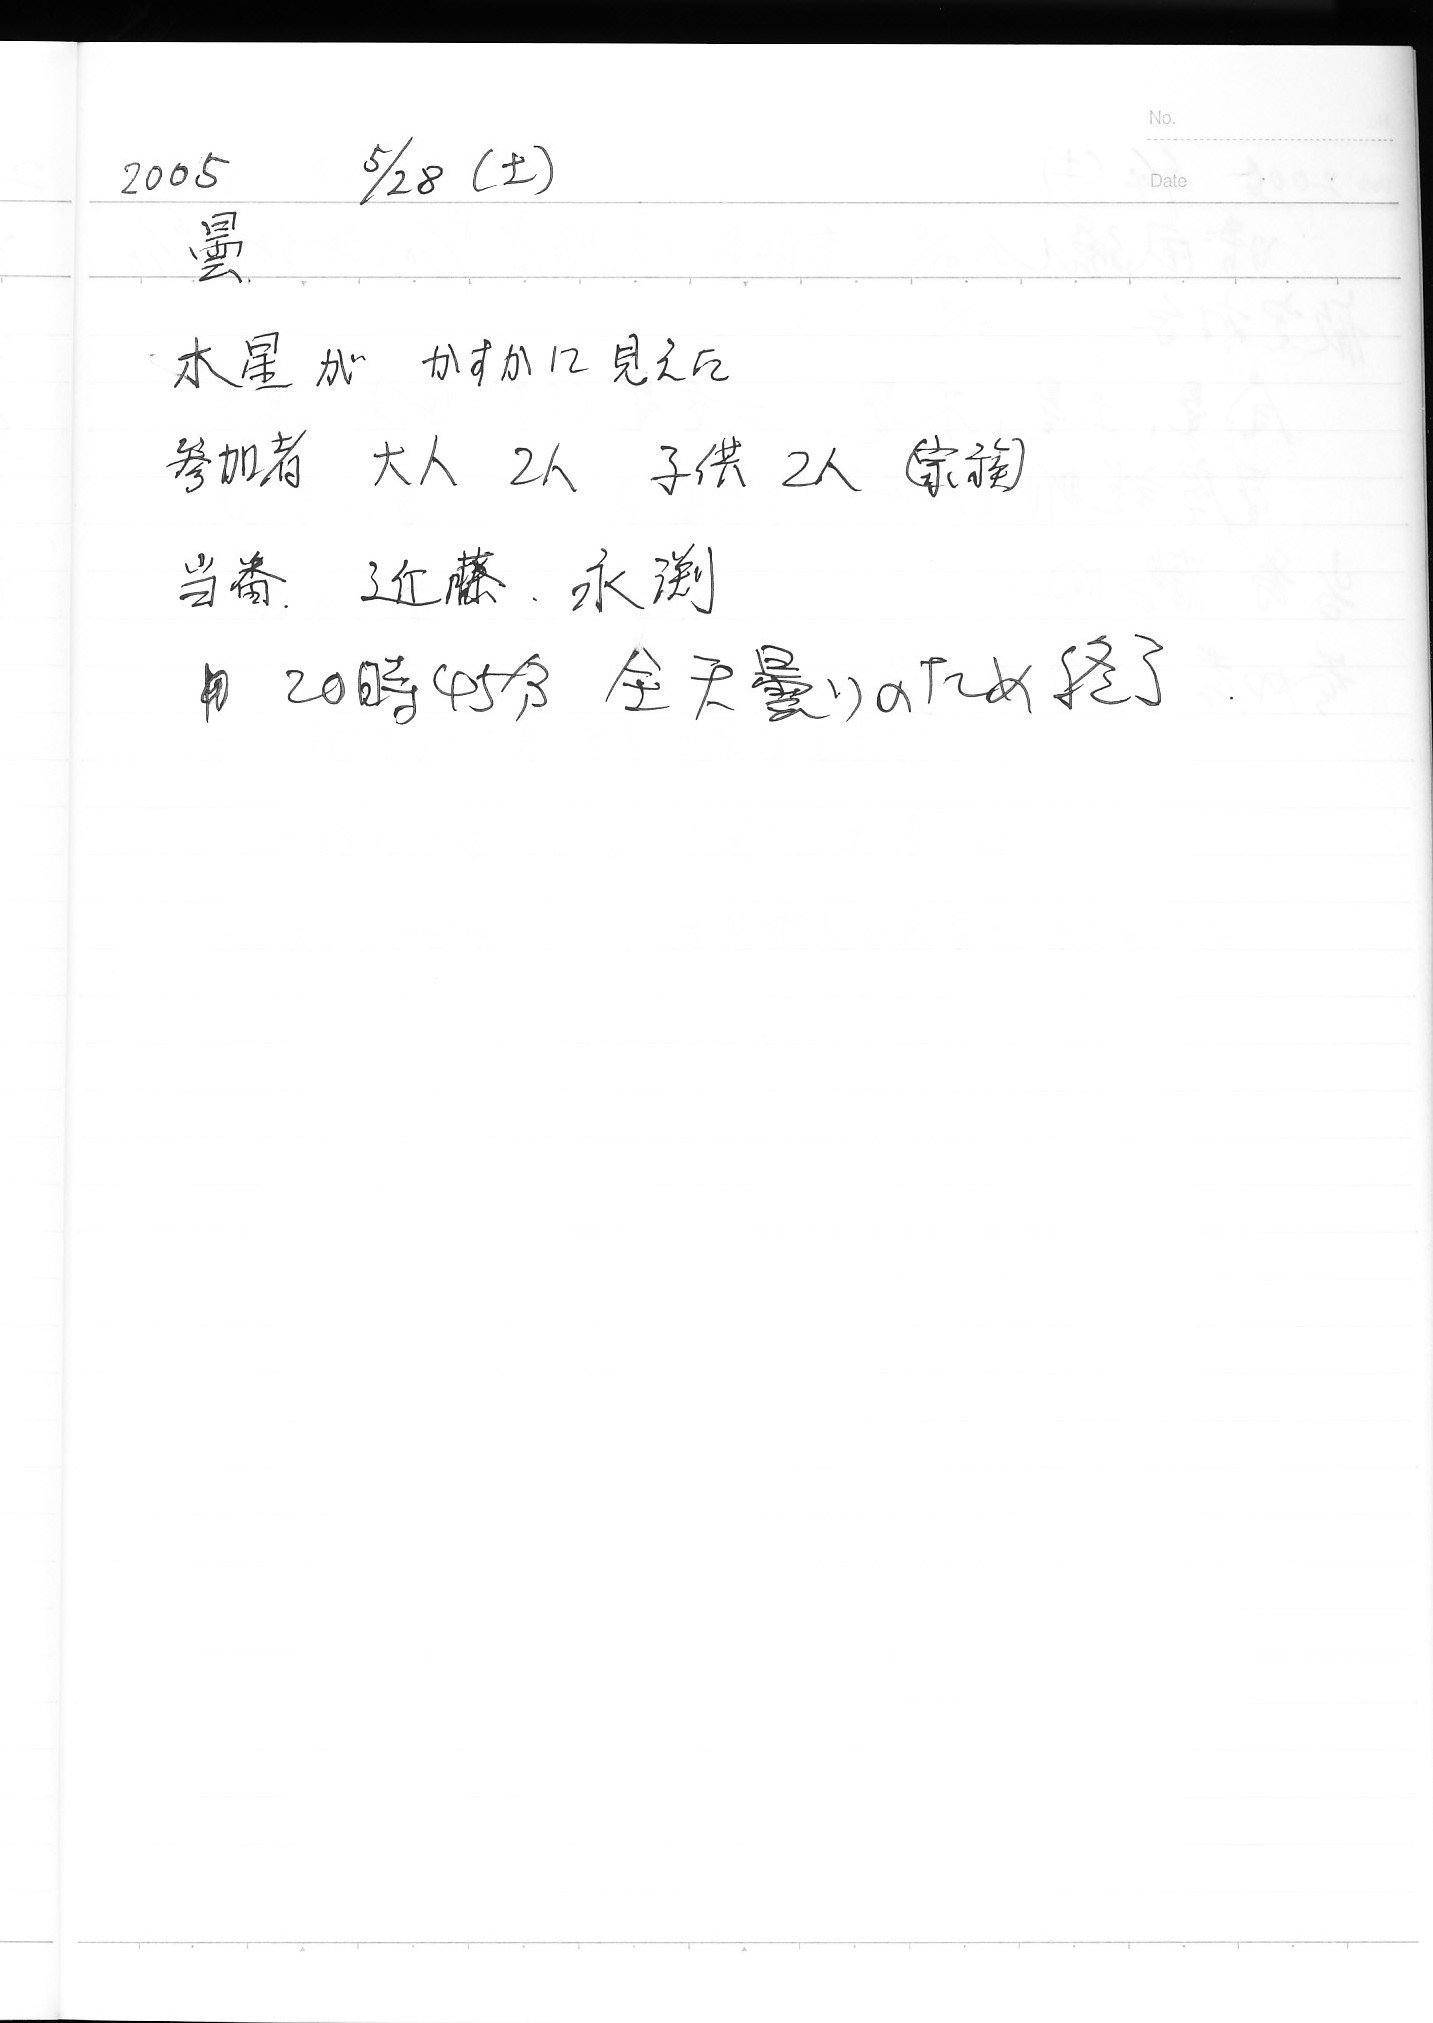 No.
2005 5/28 (土)
Date
曇
木星が かすかに見えた
参加者 大人 2人 子供 2人 (家族)
当番. 近藤. 永渕
20時45分 全天曇りのため終了.